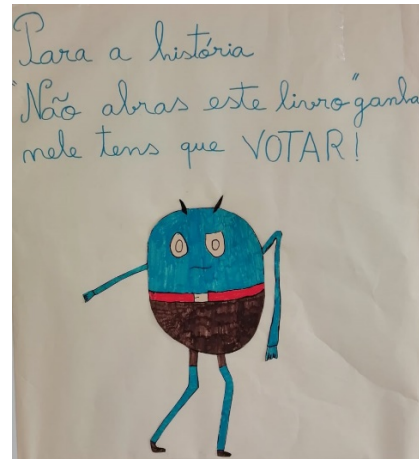 Para a história
"Não abras este livro" ganhar
nele tens que VOTAR!